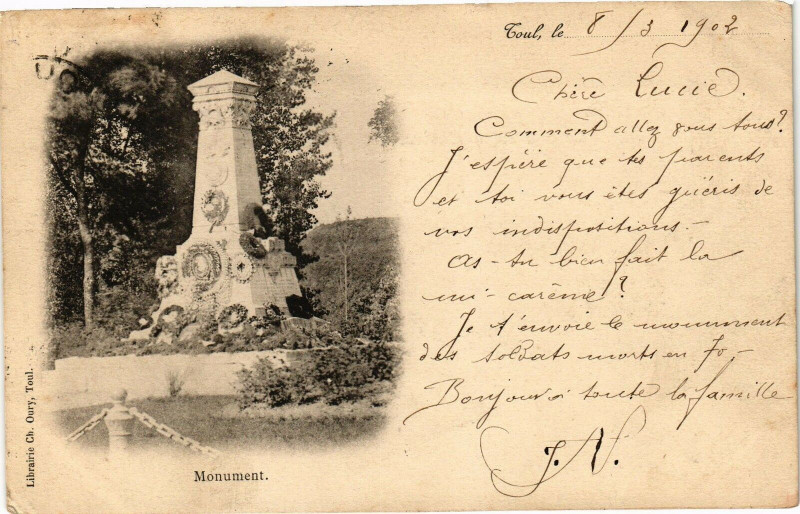 Toul, le 8/3 1902
Chère Lucie.
Comment allez vous tous?
J'espère que tes parents
et toi vous êtes guéris de
vos indispositions.-
As-tu bien fait la
mi-carême?
Je t'envoie le monument
des soldats morts en 70.-
Bonjour à toute la famille
J.N.
Monument.
Librairie Ch. Oury, Toul.